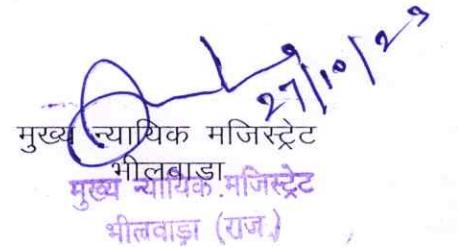 27/10/23
मुख्य न्यायिक मजिस्ट्रेट
भीलवाडा
मुख्य न्यायिक मजिस्ट्रेट
भीलवाड़ा (राज.)